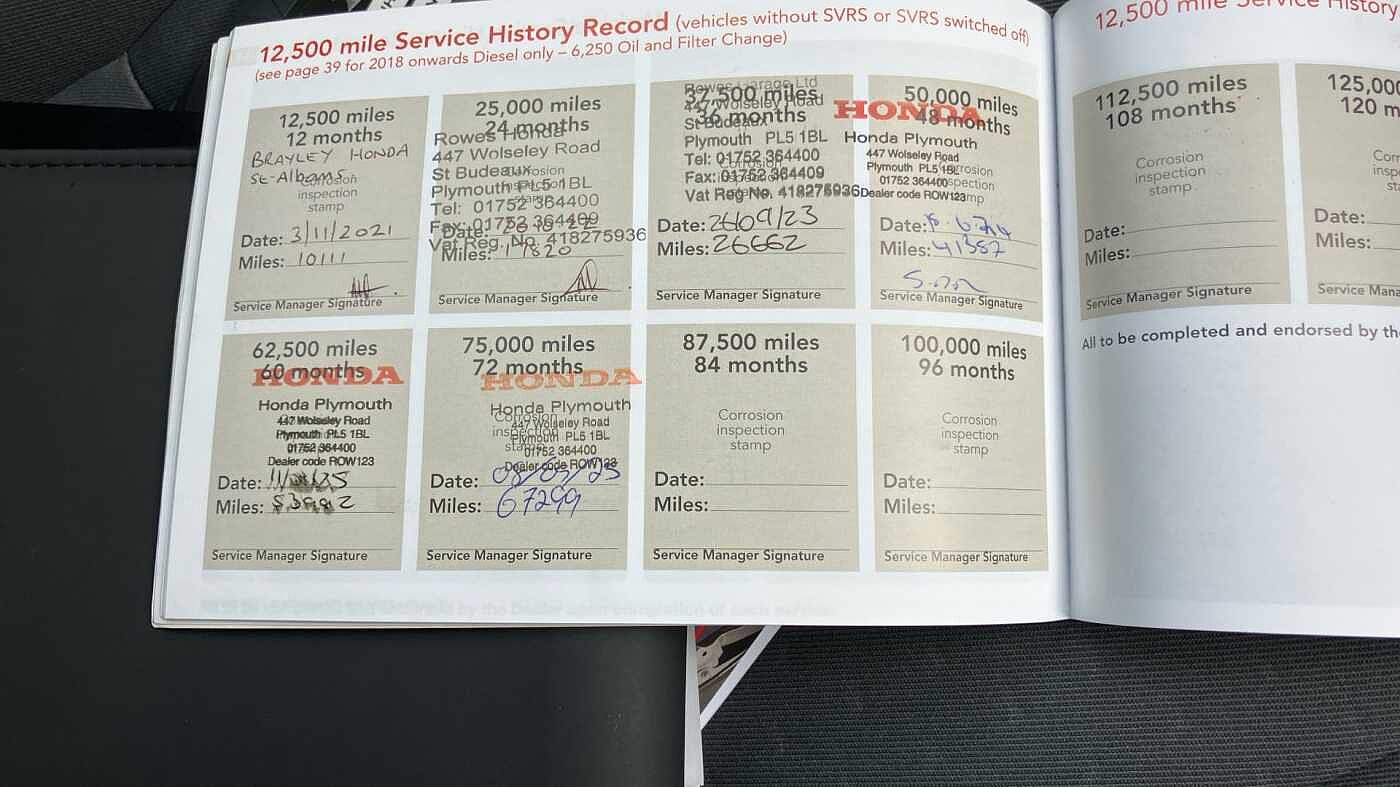 12,500 mile Service History Record (vehicles without SVRS or SVRS switched off)
(see page 39 for 2018 onwards Diesel only – 6,250 Oil and Filter Change)
12,500 miles
12 months
BRAYLEY HONDA
St-Albans
Corrosion
inspection
stamp
Date: 3/11/2021
Miles: 10111
Service Manager Signature
25,000 miles
24 months
Rowes Honda
447 Wolseley Road
St Budeaux
Plymouth PL5 1BL
Tel: 01752 364400
Fax: 01752 364409
Vat Reg. No. 418275936
Corrosion
inspection
Date:
Miles: 17820
Service Manager Signature
37,500 miles
36 months
Rowes Garage Ltd
447 Wolseley Road
St Budeaux
Plymouth PL5 1BL
Tel: 01752 364400
Fax: 01752 364409
Vat Reg No. 418275936
Date: 26/09/23
Miles: 26662
Service Manager Signature
50,000 miles
48 months
HONDA
Honda Plymouth
447 Wolseley Road
Plymouth PL5 1BL
01752 364400
Dealer code ROW123
Date:
Miles: 41387
Service Manager Signature
62,500 miles
60 months
HONDA
Honda Plymouth
447 Wolseley Road
Plymouth PL5 1BL
01752 364400
Dealer code ROW123
Date:
Miles:
Service Manager Signature
75,000 miles
72 months
HONDA
Honda Plymouth
Corrosion
inspection
stamp
447 Wolseley Road
Plymouth PL5 1BL
01752 364400
Dealer code ROW123
Date:
Miles: 67299
Service Manager Signature
87,500 miles
84 months
Corrosion
inspection
stamp
Date:
Miles:
Service Manager Signature
100,000 miles
96 months
Corrosion
inspection
stamp
Date:
Miles:
Service Manager Signature
12,500 mile Service History
112,500 miles
108 months
Corrosion
inspection
stamp
Date:
Miles:
Service Manager Signature
125,00
120 m
Date:
Miles:
Service Mana
All to be completed and endorsed by the